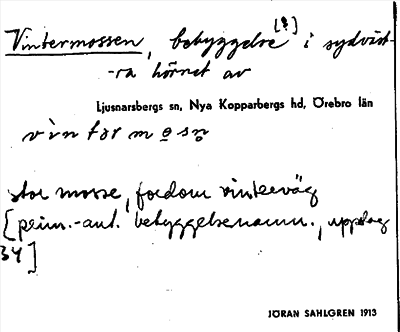 Vintermossen, bebyggelse [?] i sydväst-
-ra hörnet av
Ljusnarsbergs sn, Nya Kopparbergs hd, Örebro län
vìntərmo̲sn̥
stor mosse, fordom vinterväg
[prim.-ant. bebyggelsenamn., uppslag
34]
JÖRAN SAHLGREN 1913